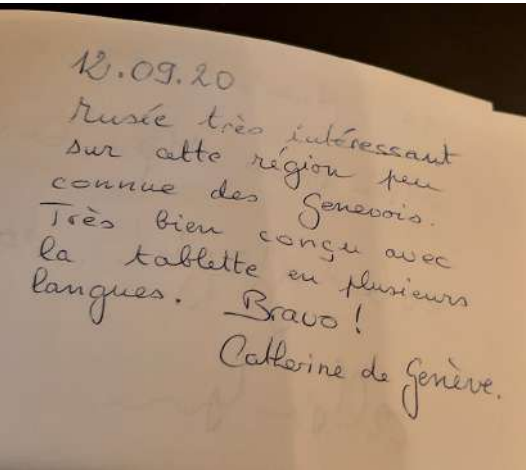 12.09.20
Musée très intéressant
sur cette région peu
connue des Genevois.
Très bien conçu avec
la tablette en plusieurs
langues. Bravo !
Catherine de Genève.